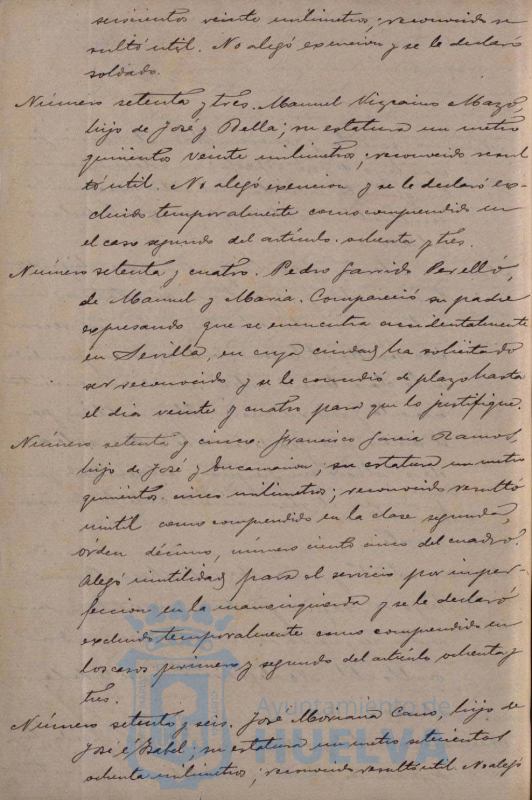 seiscientos veinte milimetros; reconocido re
sultó util. No alegó exencion y se le declaró
soldado.
Número setenta y tres. Manuel Vizcaino Mazo,
hijo de José y Bella; su estatura un metro
quinientos veinte milimetros; reconocido resul
tó util. No alegó exencion y se le declaró ex-
cluido temporalmente como comprendido en
el caso segundo del artículo ochenta y tres.
Número setenta y cuatro. Pedro Garrido Perelló,
de Manuel y Maria. Compareció su padre
expresando que se encuentra accidentalmente
en Sevilla, en cuya ciudad ha solicitado
ser reconocido y se le concedió de plazo hasta
el dia veinte y cuatro para que lo justifique.
Número setenta y cinco. Francisco Garcia Ramos,
hijo de José y Encarnacion; su estatura un metro
quinientos cinco milimetros; reconocido resultó
inutil como comprendido en la clase segunda,
órden décimo, número ciento cinco del cuadro.
Alegó inutilidad para el servicio por imper-
feccion en la mano izquierda y se le declaró
excluido temporalmente como comprendido en
los casos primero y segundo del artículo ochenta y
tres.
Ayuntamiento de
HUELVA
Número setenta y seis. José Moriana Cano, hijo de
José é Isabel; su estatura un metro setecientos
ochenta milimetros; reconocido resultó util. No alegó